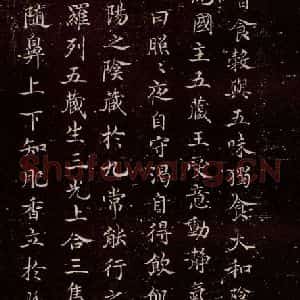 食穀與五味獨食太和陰
國主五藏王受意動靜氣
日照〻夜自守渴自得飲飢
陽之陰藏於九常能行之
羅列五藏生三光上合三焦
隨鼻上下知肥香立於
Shufawang.CN